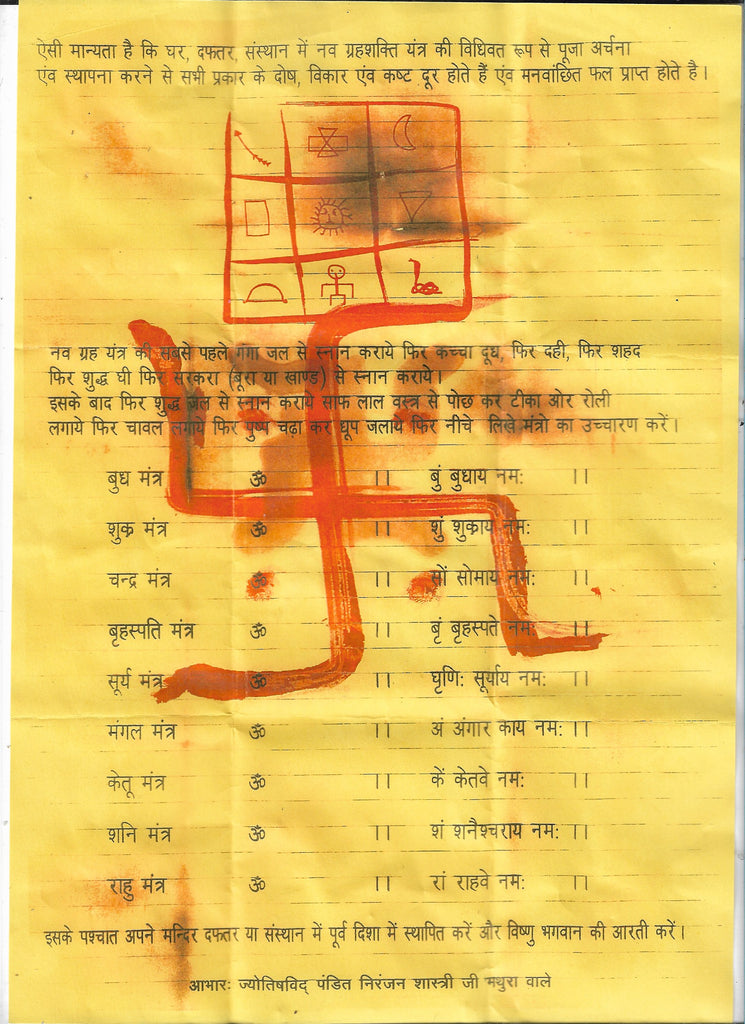 ऐसी मान्यता है कि घर, दफतर, संस्थान में नव ग्रहशक्ति यंत्र की विधिवत रूप से पूजा अर्चना
एंव स्थापना करने से सभी प्रकार के दोष, विकार एंव कष्ट दूर होते हैं एंव मनवांछित फल प्राप्त होते है।
नव ग्रह यंत्र की सबसे पहले गंगा जल से स्नान कराये फिर कच्चा दूध, फिर दही, फिर शहद
फिर शुद्ध घी फिर सरकरा (बूरा या खाण्ड) से स्नान कराये।
इसके बाद फिर शुद्ध जल से स्नान कराये साफ लाल वस्त्र से पोछ कर टीका ओर रोली
लगाये फिर चावल लगाये फिर पुष्प चढ़ा कर धूप जलाये फिर नीचे लिखे मंत्रो का उच्चारण करें।
बुध मंत्र ॐ ।। बुं बुधाय नमः ।।
शुक्र मंत्र ॐ ।। शुं शुकाय नमः ।।
चन्द्र मंत्र ॐ ।। सों सोमाय नमः ।।
बृहस्पति मंत्र ॐ ।। बृं बृहस्पते नमः ।।
सूर्य मंत्र ॐ ।। घृणिः सूर्याय नमः ।।
मंगल मंत्र ॐ ।। अं अंगार काय नमः ।।
केतू मंत्र ॐ ।। कें केतवे नमः ।।
शनि मंत्र ॐ ।। शं शनैश्चराय नमः ।।
राहु मंत्र ॐ ।। रां राहवे नमः ।।
इसके पश्चात अपने मन्दिर दफतर या संस्थान में पूर्व दिशा में स्थापित करें और विष्णु भगवान की आरती करें।
आभारः ज्योतिषविद् पंडित निरंजन शास्त्री जी मथुरा वाले